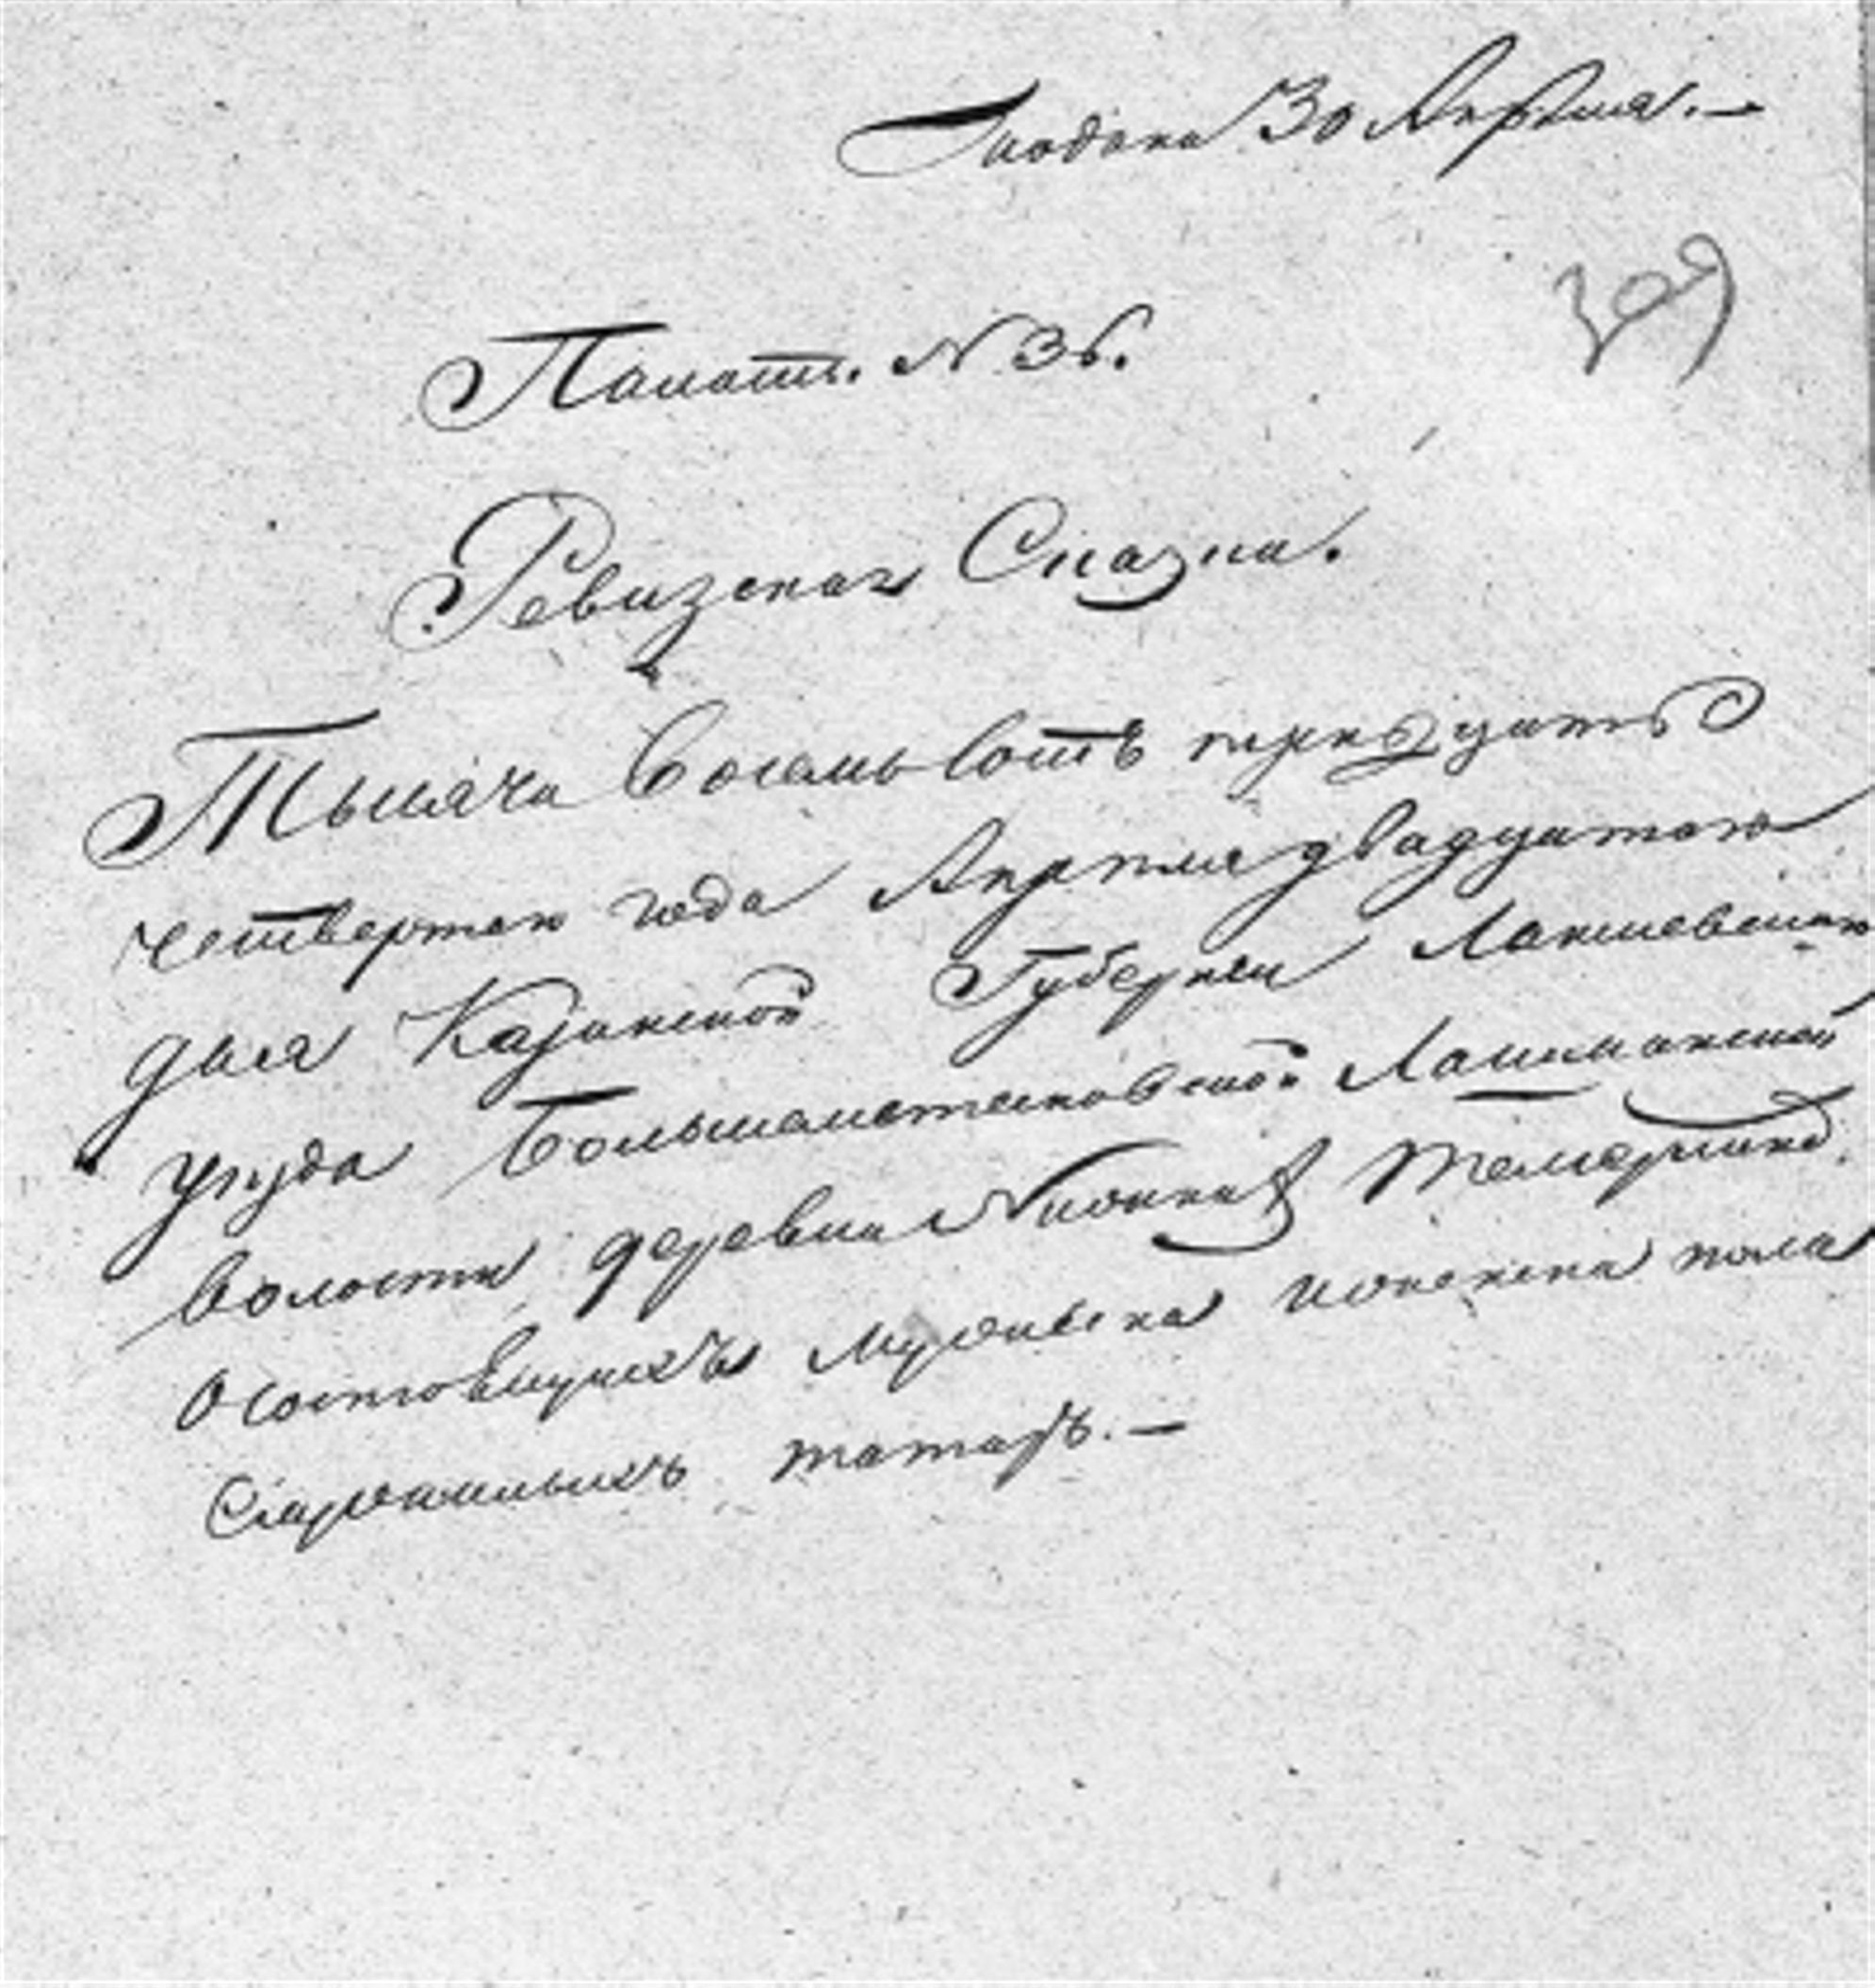 Подана 30 Апреля. —
309
Палат. N 36.
Ревизская Сказка.
Тысяча восемьсотъ тридцать
четвертаго года Апреля двадцатаго
дня Казанской Губернии Лаишевскаго
уезда Лашманской
волости деревни
о состоящихъ мужеска и женска пола
татаръ. —